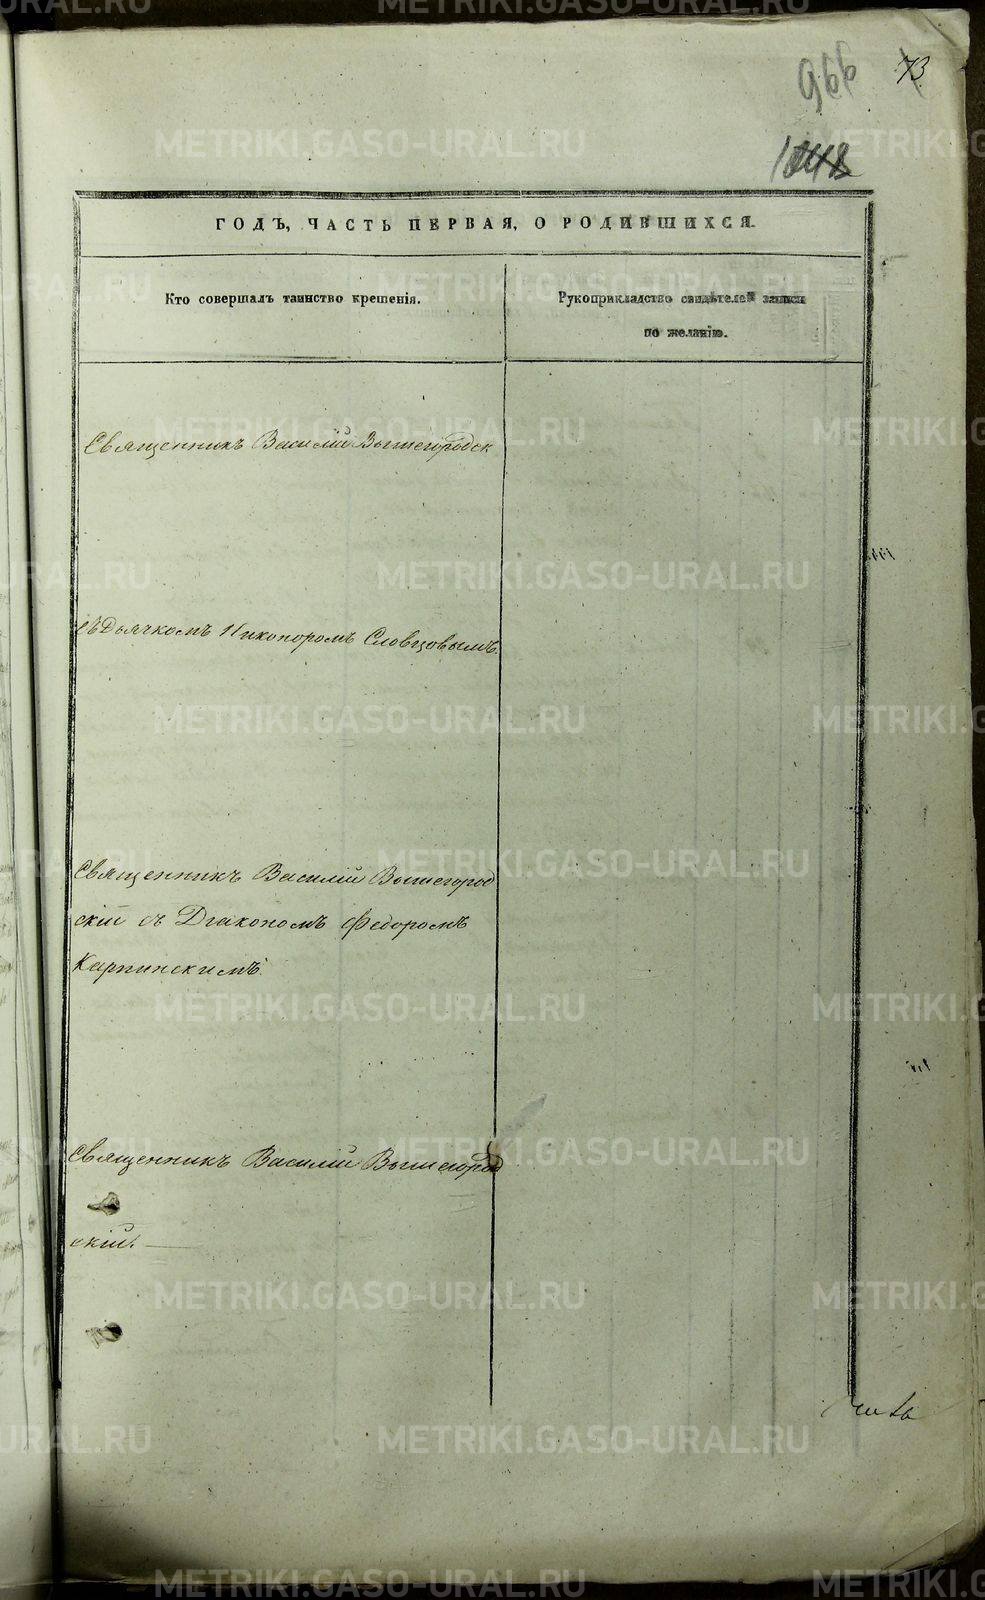 966 73
1048
ГОДЪ, ЧАСТЬ ПЕРВАЯ, О РОДИВШИХСЯ.
Кто совершалъ таинство крещенія.
Рукоприкладство свидѣтелей записи
по желанію.
Священникъ Василій Вышегородск
съ Дьячкомъ Никоноромъ Словцовымъ.
Священникъ Василій Вышегород
скій съ Діакономъ Федоромъ
Карпинскимъ
Священникъ Василій Вышегород
скій.
METRIKI.GASO-URAL.RU